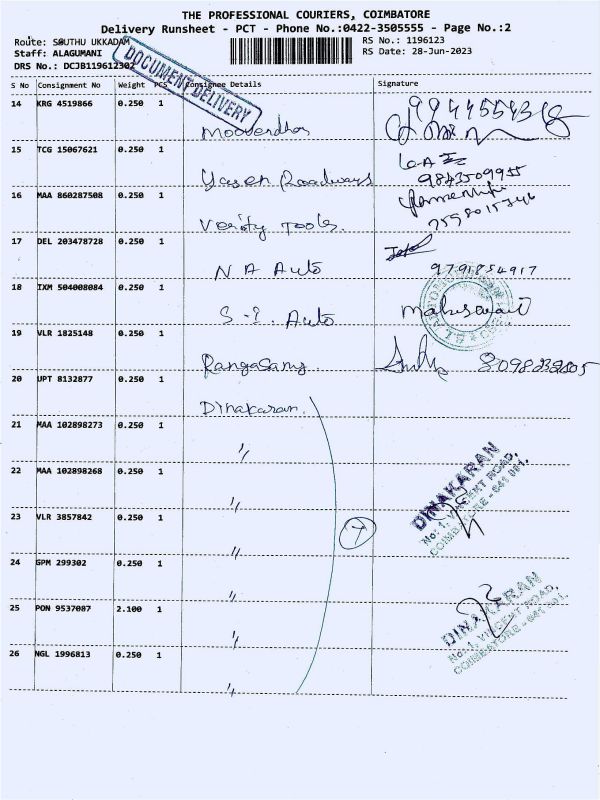 THE PROFESSIONAL COURIERS, COIMBATORE
Delivery Runsheet - PCT - Phone No.:0422-3505555 - Page No.:2
Route: SOUTHU UKKADAM
RS No.: 1196123
Staff: ALAGUMANI
RS Date: 28-Jun-2023
DRS No.: DCJB119612302
DOCUMENT DELIVERY
S No Consignment No Weight PCS Consignee Details Signature
14 KRG 4519866 0.250 1
15 TCG 15067621 0.250 1
Yaseen Roadways 9843509955
16 MAA 860287508 0.250 1
Verity Tools. 7598015746
17 DEL 203478728 0.250 1
N A Auto 9791854917
18 IXM 504008084 0.250 1
S-I. Auto
19 VLR 1825148 0.250 1
Rangasamy
20 UPT 8132877 0.250 1
Dinakaran
21 MAA 102898273 0.250 1
"
22 MAA 102898268 0.250 1
"
23 VLR 3857842 0.250 1
"
24 GPM 299302 0.250 1
"
25 PON 9537087 2.100 1
"
26 NGL 1996813 0.250 1
"
7
DINAKARAN
No: 1, VINCENT ROAD,
COIMBATORE - 641 001.
DINAKARAN
No: 1, VINCENT ROAD,
COIMBATORE - 641 001.